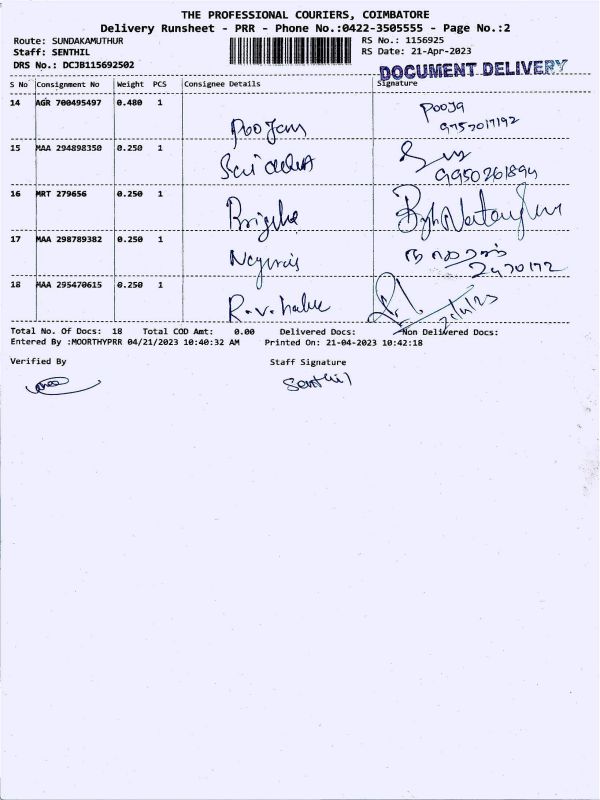 THE PROFESSIONAL COURIERS, COIMBATORE
Delivery Runsheet - PRR - Phone No.:0422-3505555 - Page No.:2
Route: SUNDAKAMUTHUR RS No.: 1156925
Staff: SENTHIL RS Date: 21-Apr-2023
DRS No.: DCJB115692502 DOCUMENT DELIVERY
S No Consignment No Weight PCS Consignee Details Signature
14 AGR 700495497 0.480 1 Pooja
9757017192
15 MAA 294898350 0.250 1
9950261894
16 MRT 279656 0.250 1
17 MAA 298789382 0.250 1
2470172
18 MAA 295470615 0.250 1
Total No. Of Docs: 18 Total COD Amt: 0.00 Delivered Docs: Non Delivered Docs:
Entered By :MOORTHYPRR 04/21/2023 10:40:32 AM Printed On: 21-04-2023 10:42:18
Verified By Staff Signature
Senthil